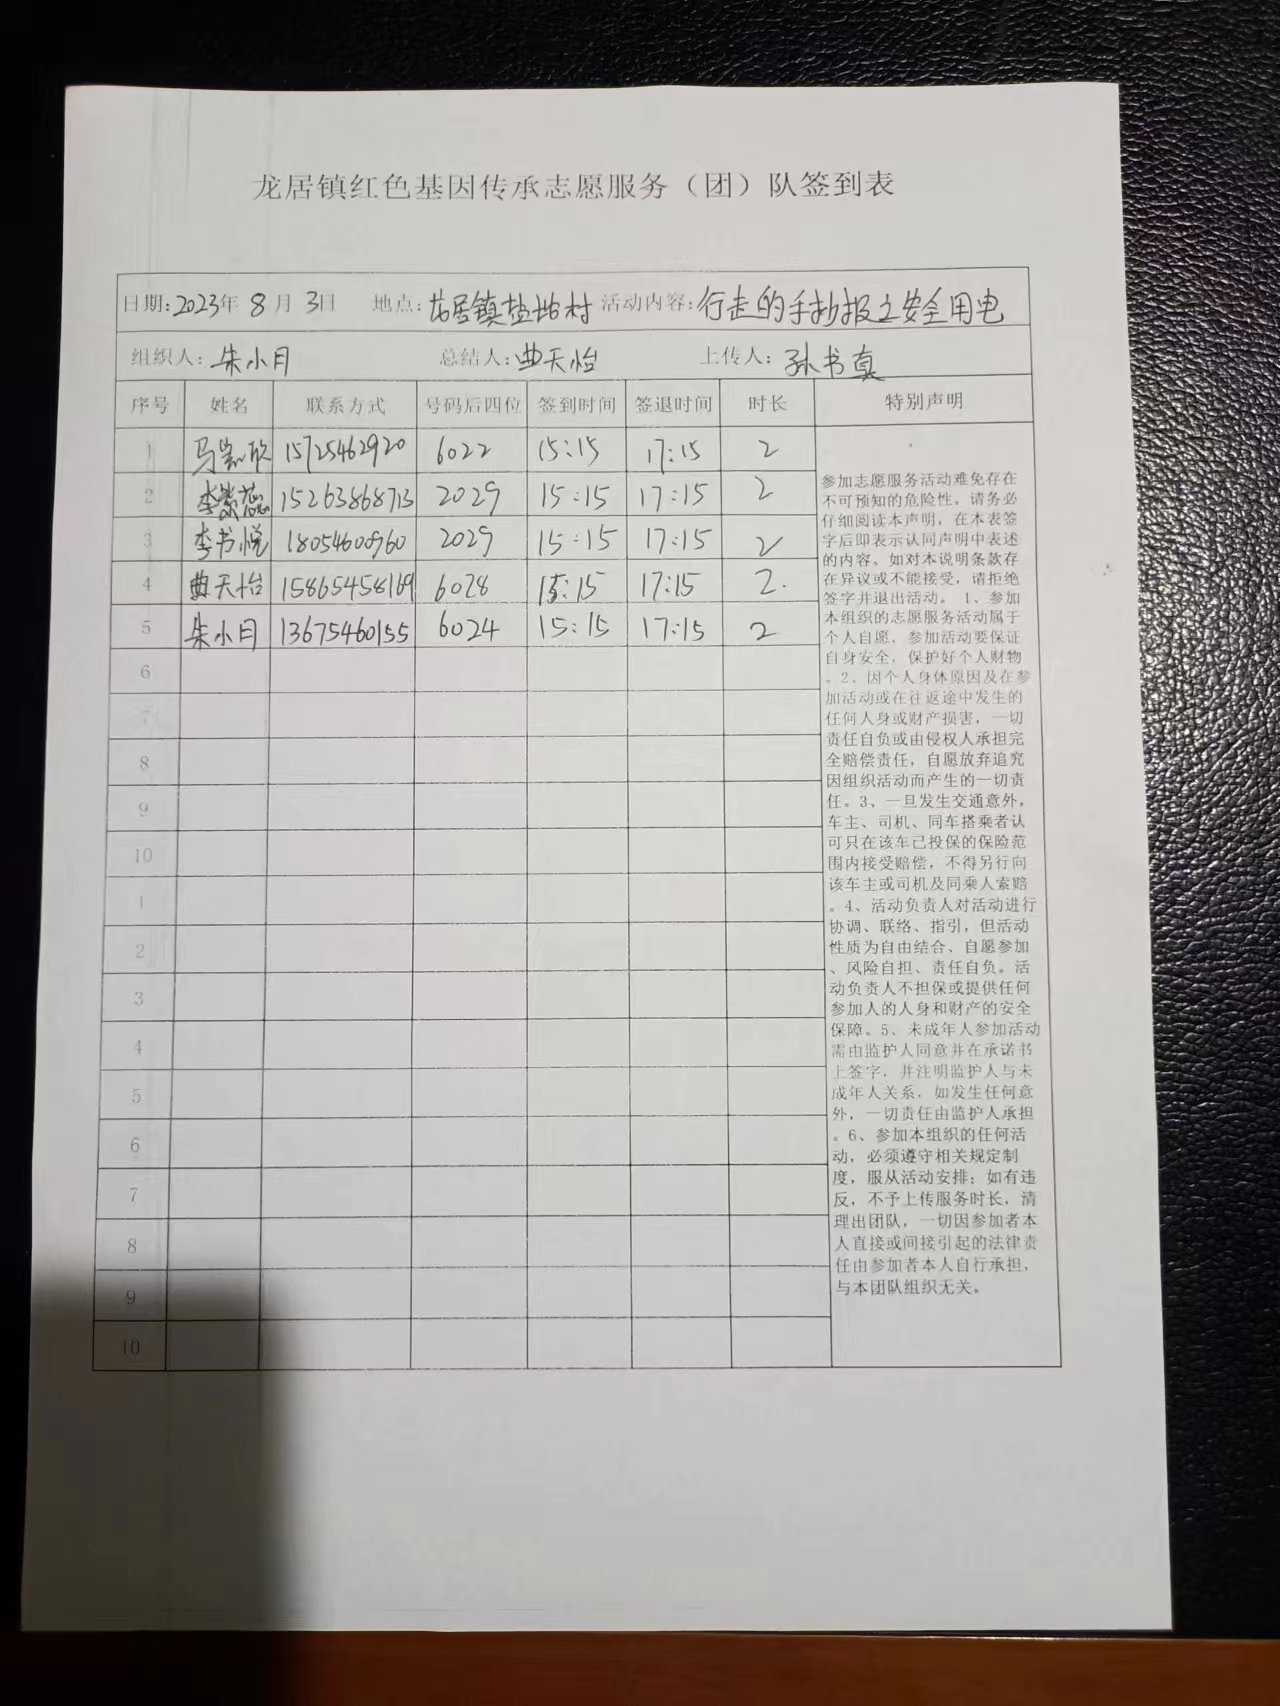 龙居镇红色基因传承志愿服务（团）队签到表
日期:2023年 8月 3日 地点:龙居镇盐坨村 活动内容:行走的手抄报之安全用电
组织人:朱小月 总结人:曲天怡 上传人:孙书真
序号 姓名 联系方式 号码后四位 签到时间 签退时间 时长 特别声明
1 马 欣 15725462920 6022 15:15 17:15 2
2 李紫蕊 15263868713 2029 15:15 17:15 2
3 李书悦 18054600960 2029 15:15 17:15 2
4 曲天怡 15865458169 6028 15:15 17:15 2.
5 朱小月 13675460155 6024 15:15 17:15 2
6
7
8
9
10
1
2
3
4
5
6
7
8
9
10
参加志愿服务活动难免存在
不可预知的危险性。请务必
仔细阅读本声明，在本表签
字后即表示认同声明中表述
的内容。如对本说明条款存
在异议或不能接受，请拒绝
签字并退出活动。 1、参加
本组织的志愿服务活动属于
个人自愿，参加活动要保证
自身安全，保护好个人财物
。2、因个人身体原因及在参
加活动或在往返途中发生的
任何人身或财产损害，一切
责任自负或由侵权人承担完
全赔偿责任，自愿放弃追究
因组织活动而产生的一切责
任。3、一旦发生交通意外，
车主、司机、同车搭乘者认
可只在该车已投保的保险范
围内接受赔偿，不得另行向
该车主或司机及同乘人索赔
。4、活动负责人对活动进行
协调、联络、指引，但活动
性质为自由结合、自愿参加
、风险自担、责任自负。活
动负责人不担保或提供任何
参加人的人身和财产的安全
保障。5、未成年人参加活动
需由监护人同意并在承诺书
上签字，并注明监护人与未
成年人关系，如发生任何意
外，一切责任由监护人承担
。6、参加本组织的任何活
动，必须遵守相关规定制
度，服从活动安排；如有违
反，不予上传服务时长，清
理出团队，一切因参加者本
人直接或间接引起的法律责
任由参加者本人自行承担，
与本团队组织无关。